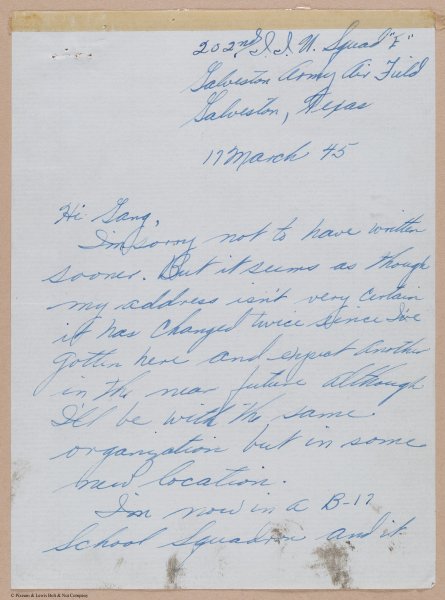 202nd I. I. U. Squad "E"
Galveston Army Air Field
Galveston, Texas
17 March 45
Hi Gang,
I'm sorry not to have written
sooner. But it seems as though
my address isn't very certain
it has changed twice since I've
gotten here and expect another
in the near future although
I'll be with the same
organization but in some
new location.
I'm now in a B-17
School Squadron and it
© Russell & Lewis Bolt & Nut Company